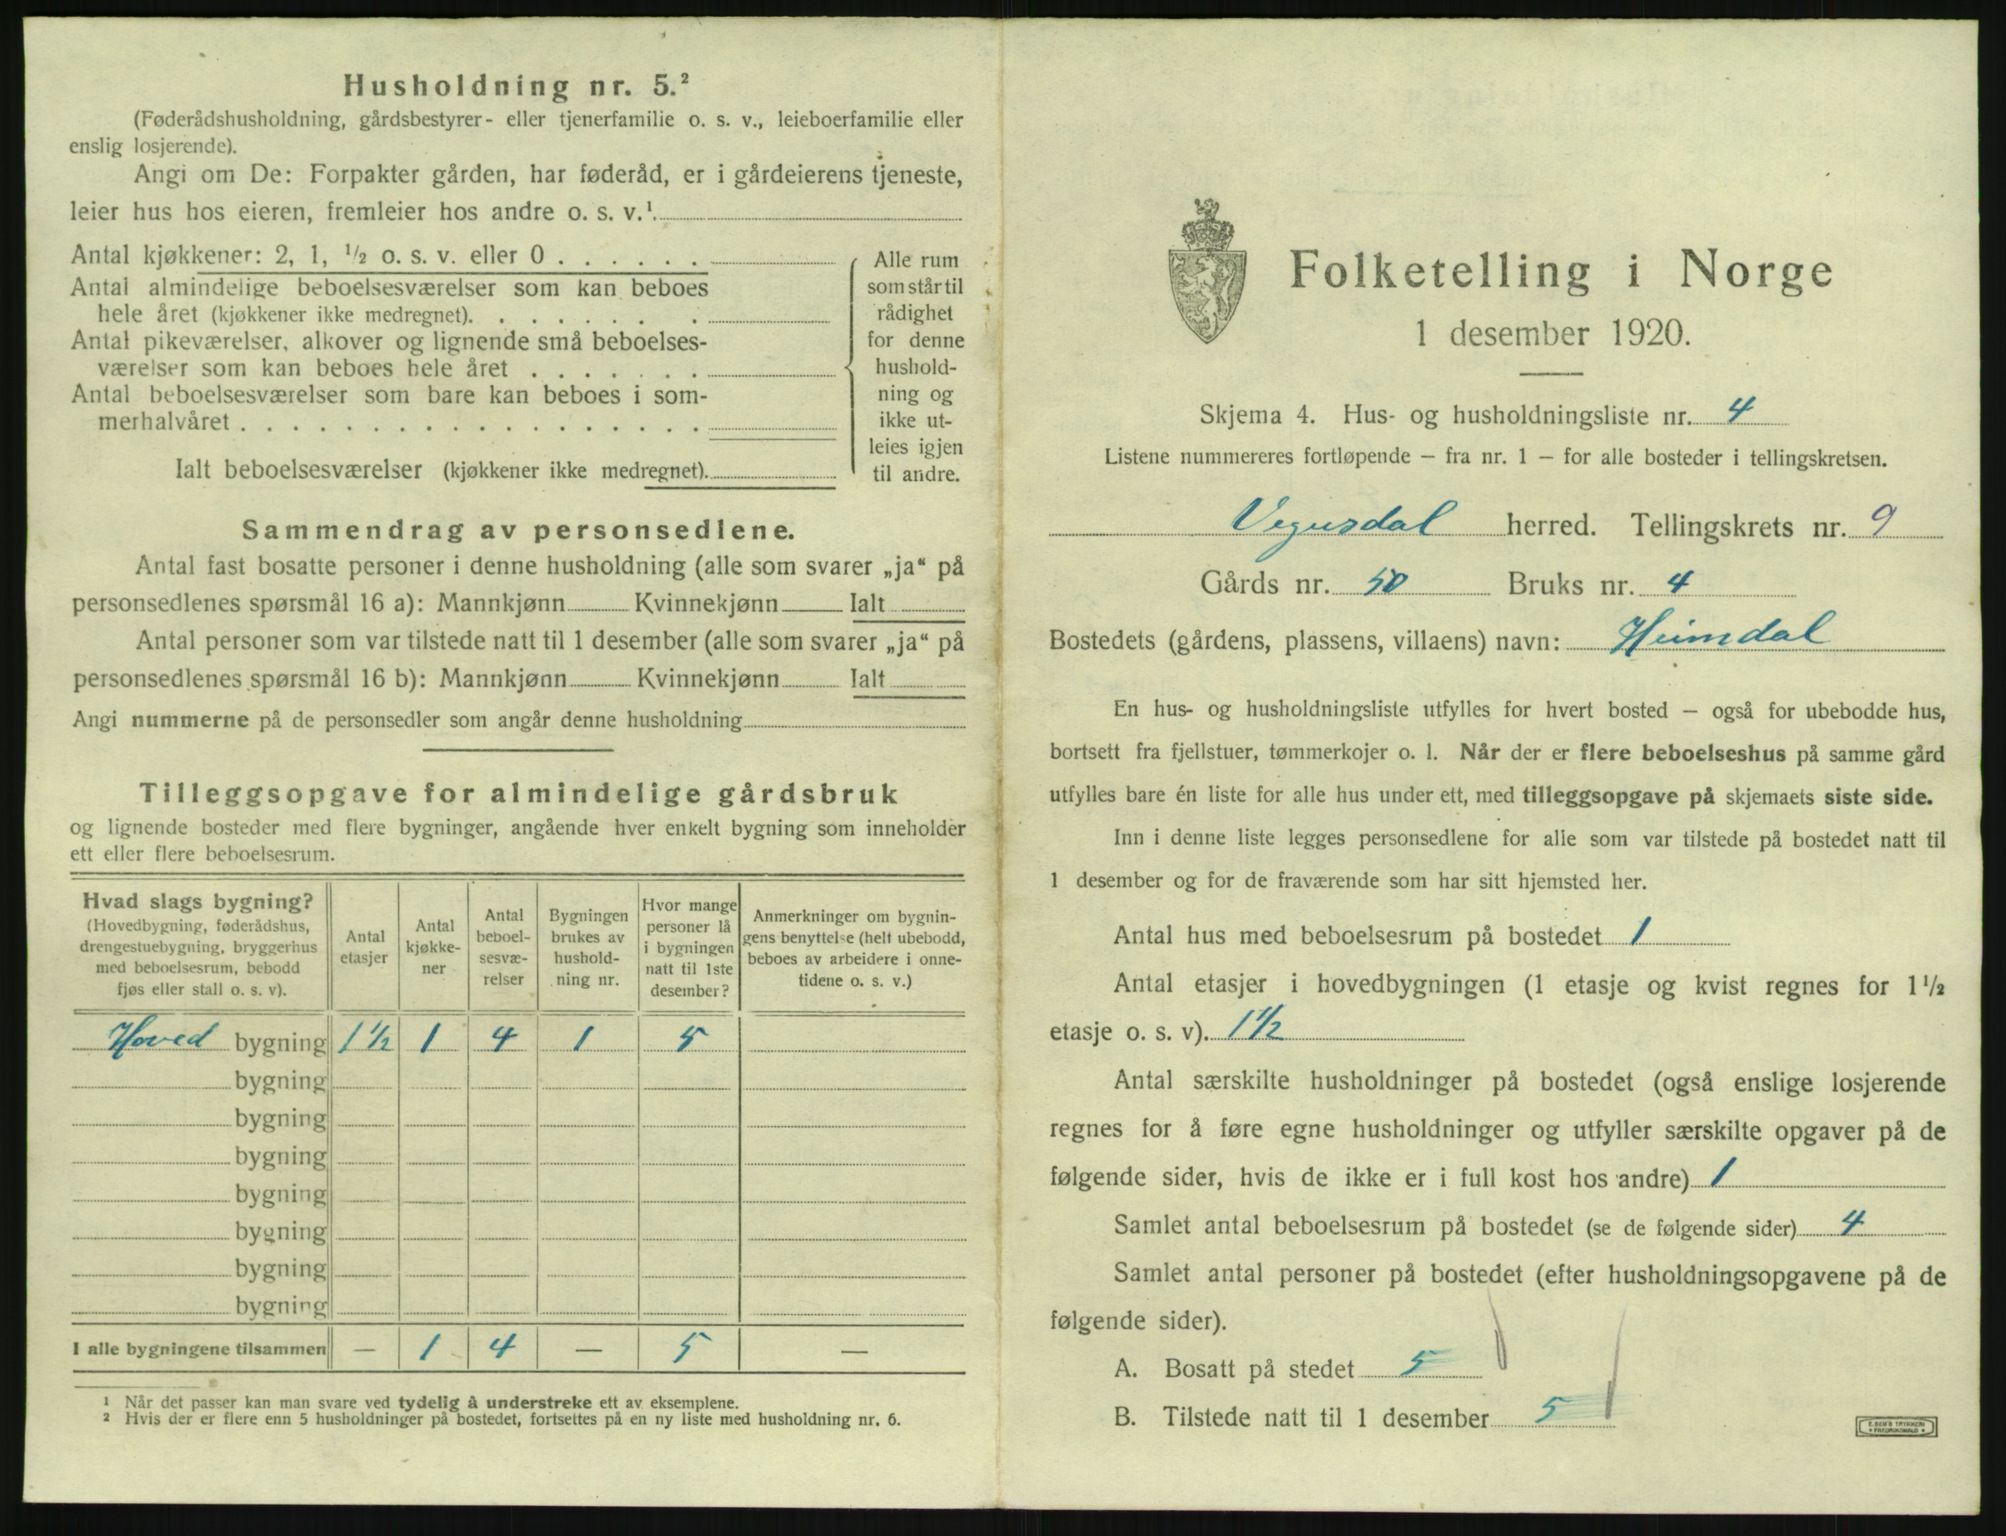 Husholdning nr. 5.²
(Føderådshusholdning, gårdsbestyrer- eller tjenerfamilie o. s. v., leieboerfamilie eller
enslig losjerende).
Angi om De: Forpakter gården, har føderåd, er i gårdeierens tjeneste,
leier hus hos eieren, fremleier hos andre o. s. v.¹
Antal kjøkkener: 2, 1, ½ o. s. v. eller 0
Antal almindelige beboelsesværelser som kan beboes
hele året (kjøkkener ikke medregnet).
Antal pikeværelser, alkover og lignende små beboelses-
værelser som kan beboes hele året
Antal beboelsesværelser som bare kan beboes i som-
merhalvåret
Ialt beboelsesværelser (kjøkkener ikke medregnet).
Alle rum
som står til
rådighet
for denne
hushold-
ning og
ikke ut-
leies igjen
til andre.
Sammendrag av personsedlene.
Antal fast bosatte personer i denne husholdning (alle som svarer „ja“ på
personsedlenes spørsmål 16 a): Mannkjønn Kvinnekjønn Ialt
Antal personer som var tilstede natt til 1 desember (alle som svarer „ja“ på
personsedlenes spørsmål 16 b): Mannkjønn Kvinnekjønn Ialt
Angi nummerne på de personsedler som angår denne husholdning
Tilleggsopgave for almindelige gårdsbruk
og lignende bosteder med flere bygninger, angående hver enkelt bygning som inneholder
ett eller flere beboelsesrum.
Hvad slags bygning?
(Hovedbygning, føderådshus,
drengestuebygning, bryggerhus
med beboelsesrum, bebodd
fjøs eller stall o. s. v).
Antal
etasjer
Antal
kjøkke-
ner
Antal
beboel-
sesvæ-
relser
Bygningen
brukes av
hushold-
ning nr.
Hvor mange
personer lå
i bygningen
natt til 1ste
desember?
Anmerkninger om bygnin-
gens benyttelse (helt ubebodd,
beboes av arbeidere i onne-
tidene o. s. v.)
Hoved bygning 1½ 1 4 1 5
bygning
bygning
bygning
bygning
bygning
bygning
bygning
I alle bygningene tilsammen — 1 4 — 5 —
¹ Når det passer kan man svare ved tydelig å understreke ett av eksemplene.
² Hvis der er flere enn 5 husholdninger på bostedet, fortsettes på en ny liste med husholdning nr. 6.
Folketelling i Norge
1 desember 1920.
Skjema 4. Hus- og husholdningsliste nr. 4
Listene nummereres fortløpende – fra nr. 1 – for alle bosteder i tellingskretsen.
Vegusdal herred. Tellingskrets nr. 9
Gårds nr. 50 Bruks nr. 4
Bostedets (gårdens, plassens, villaens) navn: Heimdal
En hus- og husholdningsliste utfylles for hvert bosted – også for ubebodde hus,
bortsett fra fjellstuer, tømmerkojer o. l. Når der er flere beboelseshus på samme gård
utfylles bare én liste for alle hus under ett, med tilleggsopgave på skjemaets siste side.
Inn i denne liste legges personsedlene for alle som var tilstede på bostedet natt til
1 desember og for de fraværende som har sitt hjemsted her.
Antal hus med beboelsesrum på bostedet 1
Antal etasjer i hovedbygningen (1 etasje og kvist regnes for 1½
etasje o. s. v). 1½
Antal særskilte husholdninger på bostedet (også enslige losjerende
regnes for å føre egne husholdninger og utfyller særskilte opgaver på de
følgende sider, hvis de ikke er i full kost hos andre) 1
Samlet antal beboelsesrum på bostedet (se de følgende sider) 4
Samlet antal personer på bostedet (efter husholdningsopgavene på de
følgende sider).
A. Bosatt på stedet 5
B. Tilstede natt til 1 desember 5
E. SEM'S TRYKKERI
FREDRIKSHALD